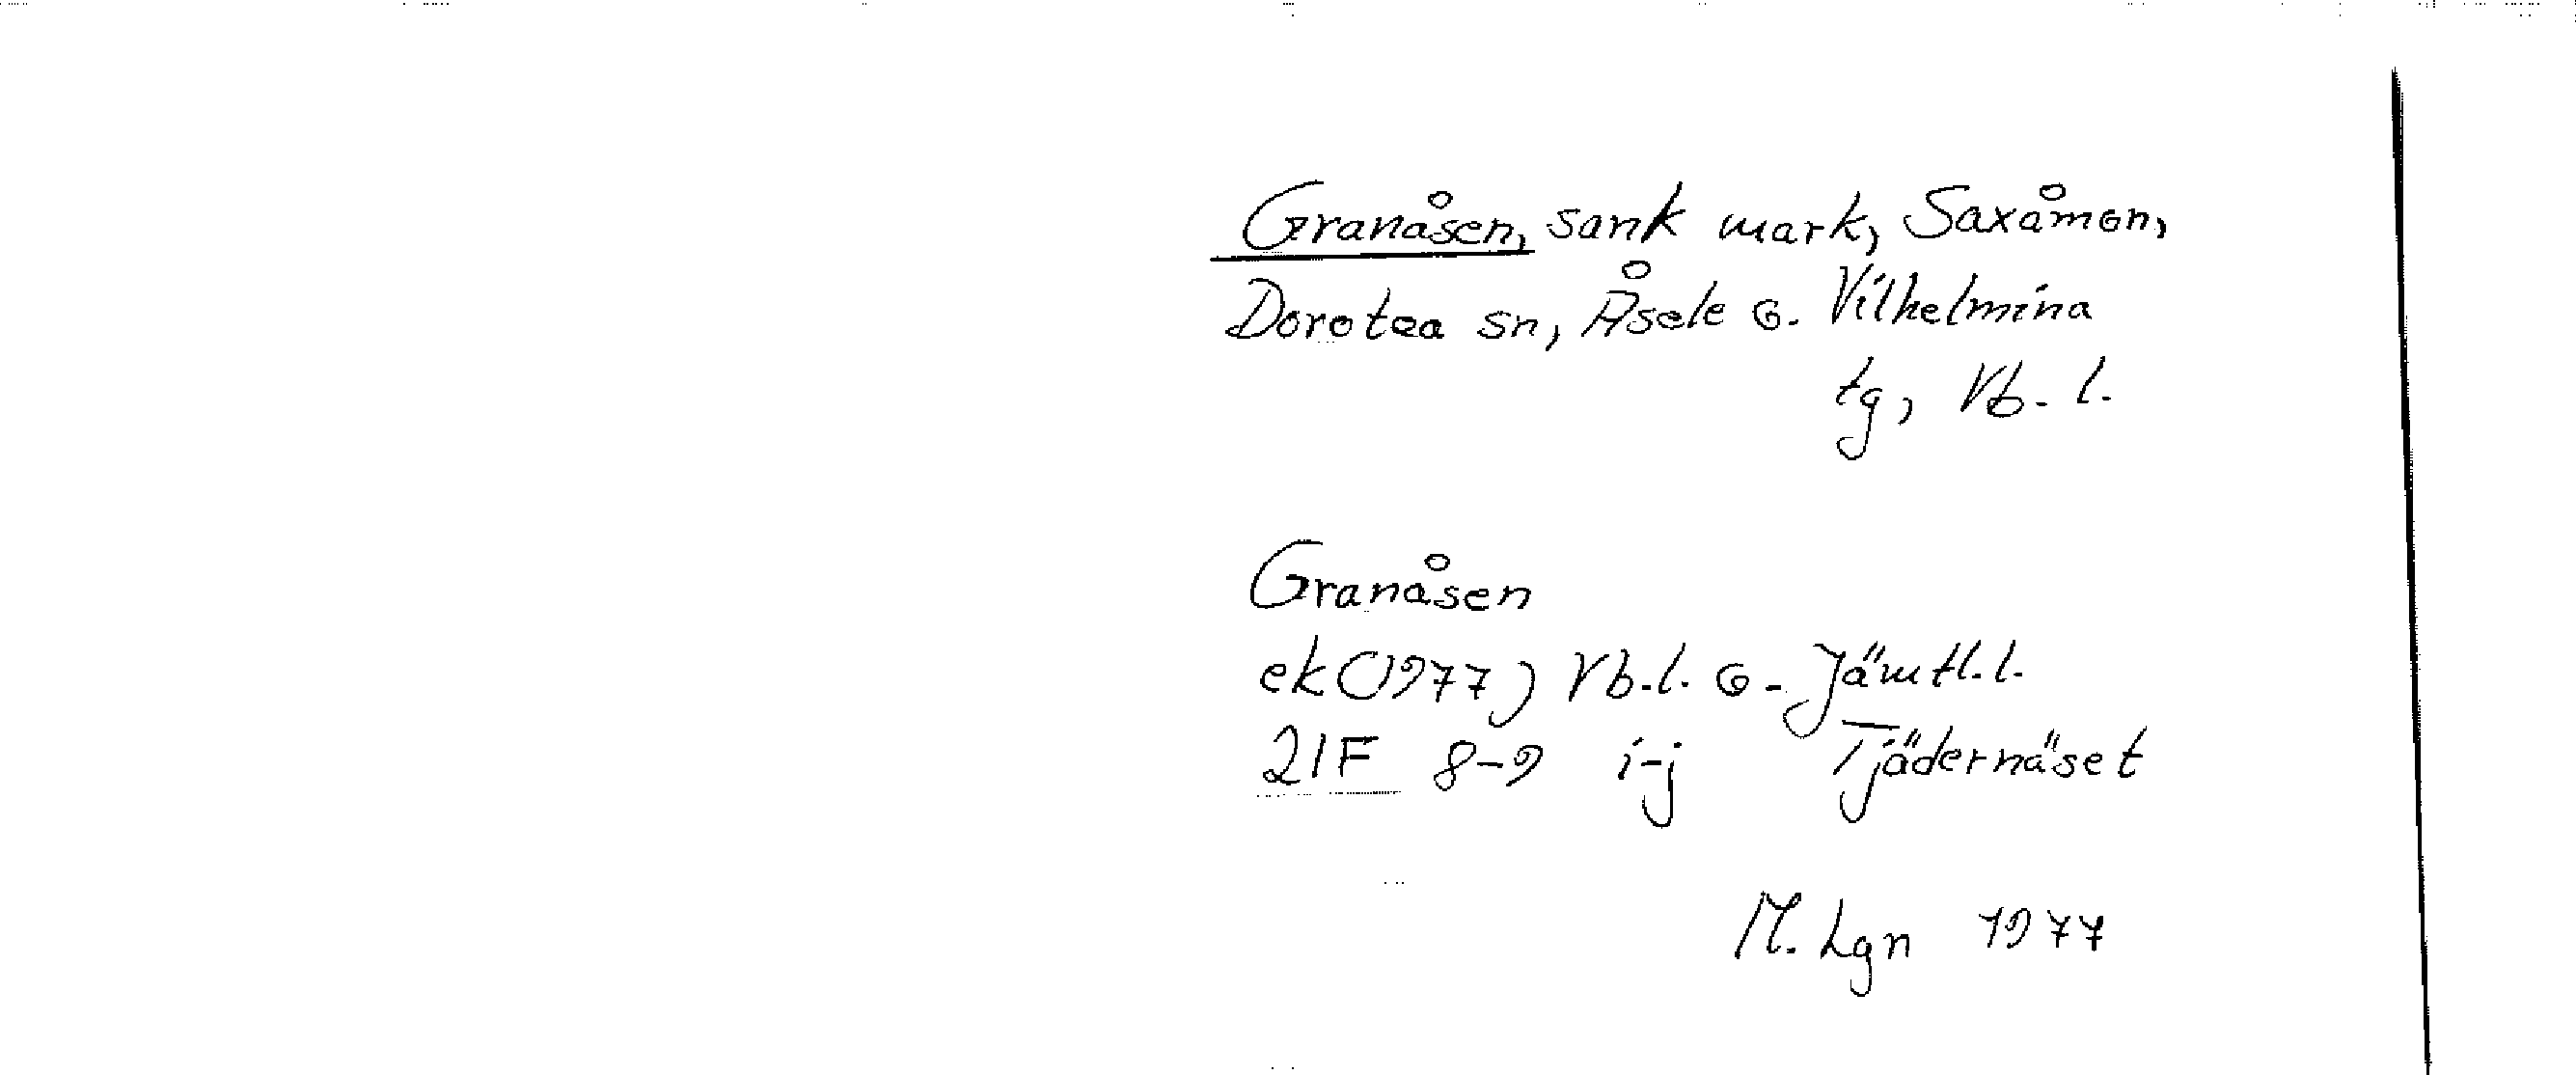 Granåsen, sank mark, Saxåmon,
Dorotea sn, Åsele o. Vilhelmina
tg, Vb. l.
Granåsen
ek (1977) Vb. l. o. Jämtl. l.
21F 8-9 i-j Tjädernäset
M. Lgn 1977